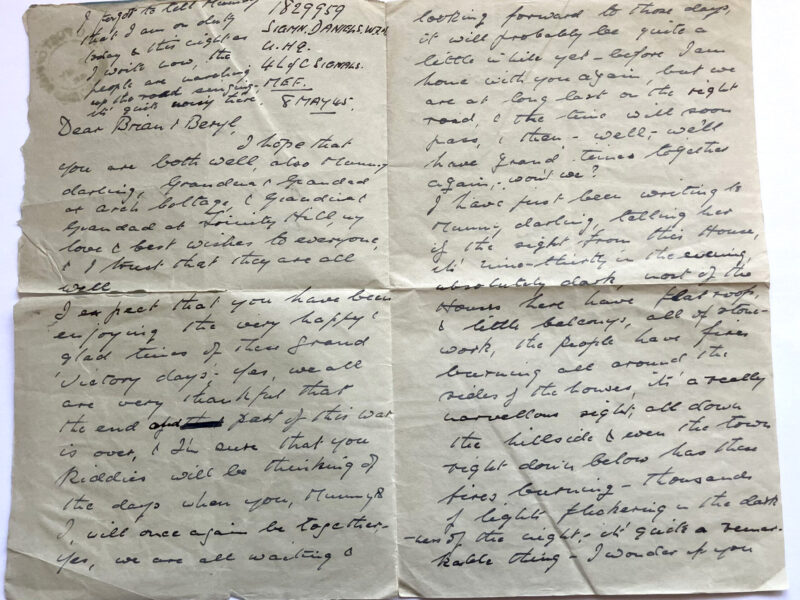 I forgot to tell Mummy
that I am on duty
today & this night as
I write now, the
people are marching
up the road singing -
it's quite noisy here.
1829959
SIGMN. DANIELS. W.
G.H.Q.
4 L of C SIGNALS.
MEF.
8 MAY 45.
Dear Brian & Beryl,
I hope that
you are both well, also Mummy
darling, Grandma & Grandad
at Arch Cottage, & Grandma &
Grandad at Trinity Hill, my
love & best wishes to everyone,
& I trust that they are all
well.
I expect that you have been
enjoying the very happy &
glad times of these grand
'Victory days', yes, we all
are very thankful that
the end part of this war
is over, & I'm sure that you
Kiddies will be thinking of
the days when you, Mummy &
I, will once again be together -
Yes, we are all waiting &
looking forward to those days,
it will probably be quite a
little while yet - before I am
home with you again, but we
are at long last on the right
road, & the time will soon
pass, & then - well, - we'll
have grand times together
again, - won't we?
I have just been writing to
Mummy darling, telling her
of the sight from this House,
it's nine-thirty in the evening,
absolutely dark, most of the
Houses here have flat roofs,
& little balconys, all of stone-
work, the people have fires
burning all around the
sides of the houses, it's a really
marvellous sight, all down
the hillside & even the town
right down below has these
fires burning - thousands
of lights flickering in the dark
-ness of the night, it's quite a remar-
kable thing - I wonder if you